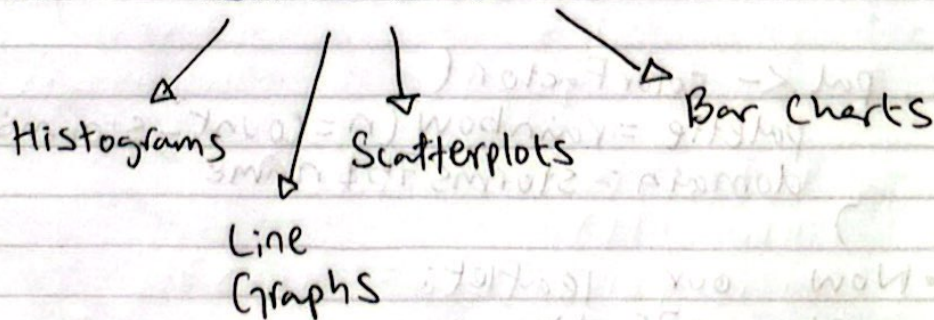 Histograms
Line
Graphs
Scatterplots
Bar Charts